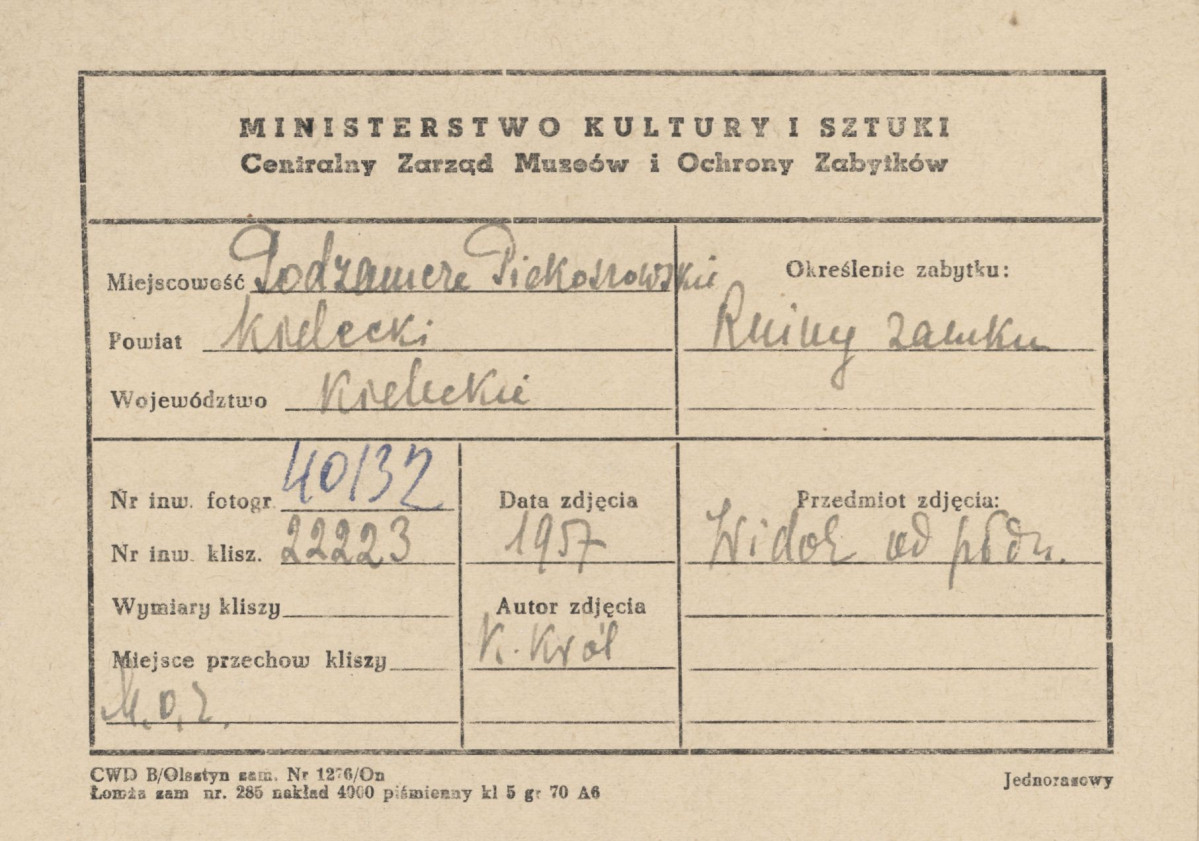 MINISTERSTWO KULTURY I SZTUKI
Centralny Zarząd Muzeów i Ochrony Zabytków
Miejscowość Podzamcze Piekoszowskie
Powiat Kielecki
Województwo Kieleckie
Określenie zabytku:
Ruiny zamku
Nr inw. fotogr. 40/32
Nr inw. klisz. 22223
Wymiary kliszy
Miejsce przechow kliszy
M.O.Z.
Data zdjęcia
1957
Autor zdjęcia
K. Król
Przedmiot zdjęcia:
Widok od płdn.
CWD B/Olsztyn zam. Nr 1276/On
Łomża zam nr. 285 nakład 4000 piśmienny kl 5 gr 70 A6
Jednorazowy